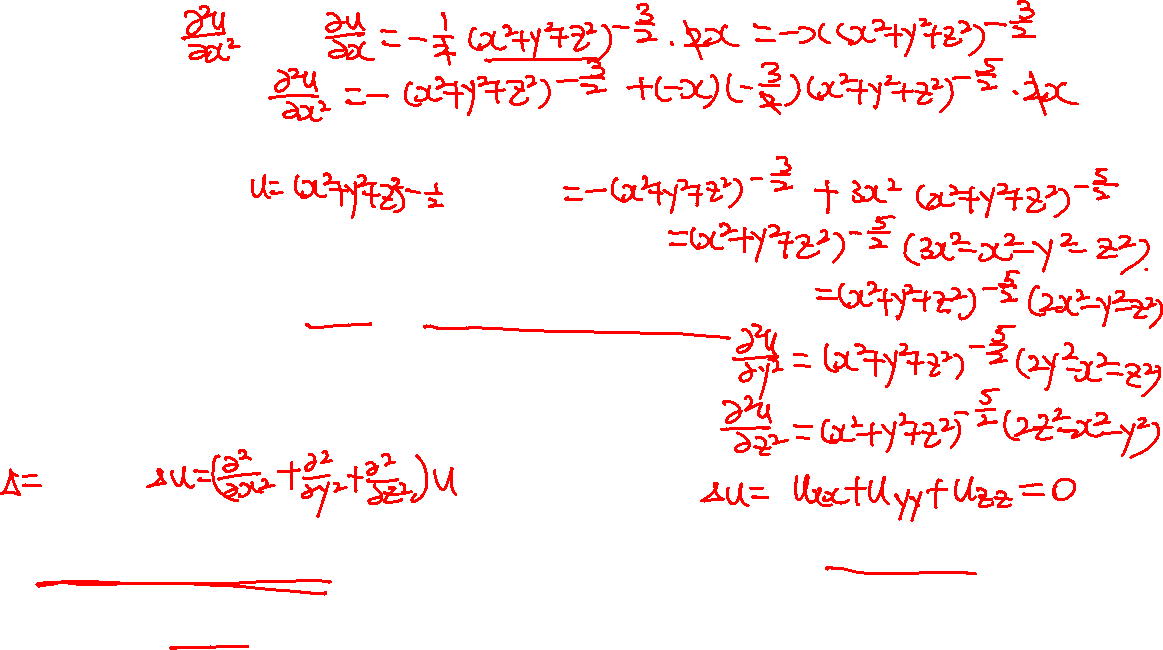 ∂²u/∂x² ∂u/∂x = -1/2 (x²+y²+z²)^(-3/2) · 2x = -x(x²+y²+z²)^(-3/2)
∂²u/∂x² = -(x²+y²+z²)^(-3/2) + (-x)(-3/2)(x²+y²+z²)^(-5/2) · 2x
u = (x²+y²+z²)^(-1/2) = -(x²+y²+z²)^(-3/2) + 3x² (x²+y²+z²)^(-5/2)
= (x²+y²+z²)^(-5/2) (3x²-x²-y²-z²).
= (x²+y²+z²)^(-5/2) (2x²-y²-z²)
∂²u/∂y² = (x²+y²+z²)^(-5/2) (2y²-x²-z²)
∂²u/∂z² = (x²+y²+z²)^(-5/2) (2z²-x²-y²)
Δ= Δu = (∂²/∂x² + ∂²/∂y² + ∂²/∂z²)u Δu = Uxx+Uyy+Uzz = 0